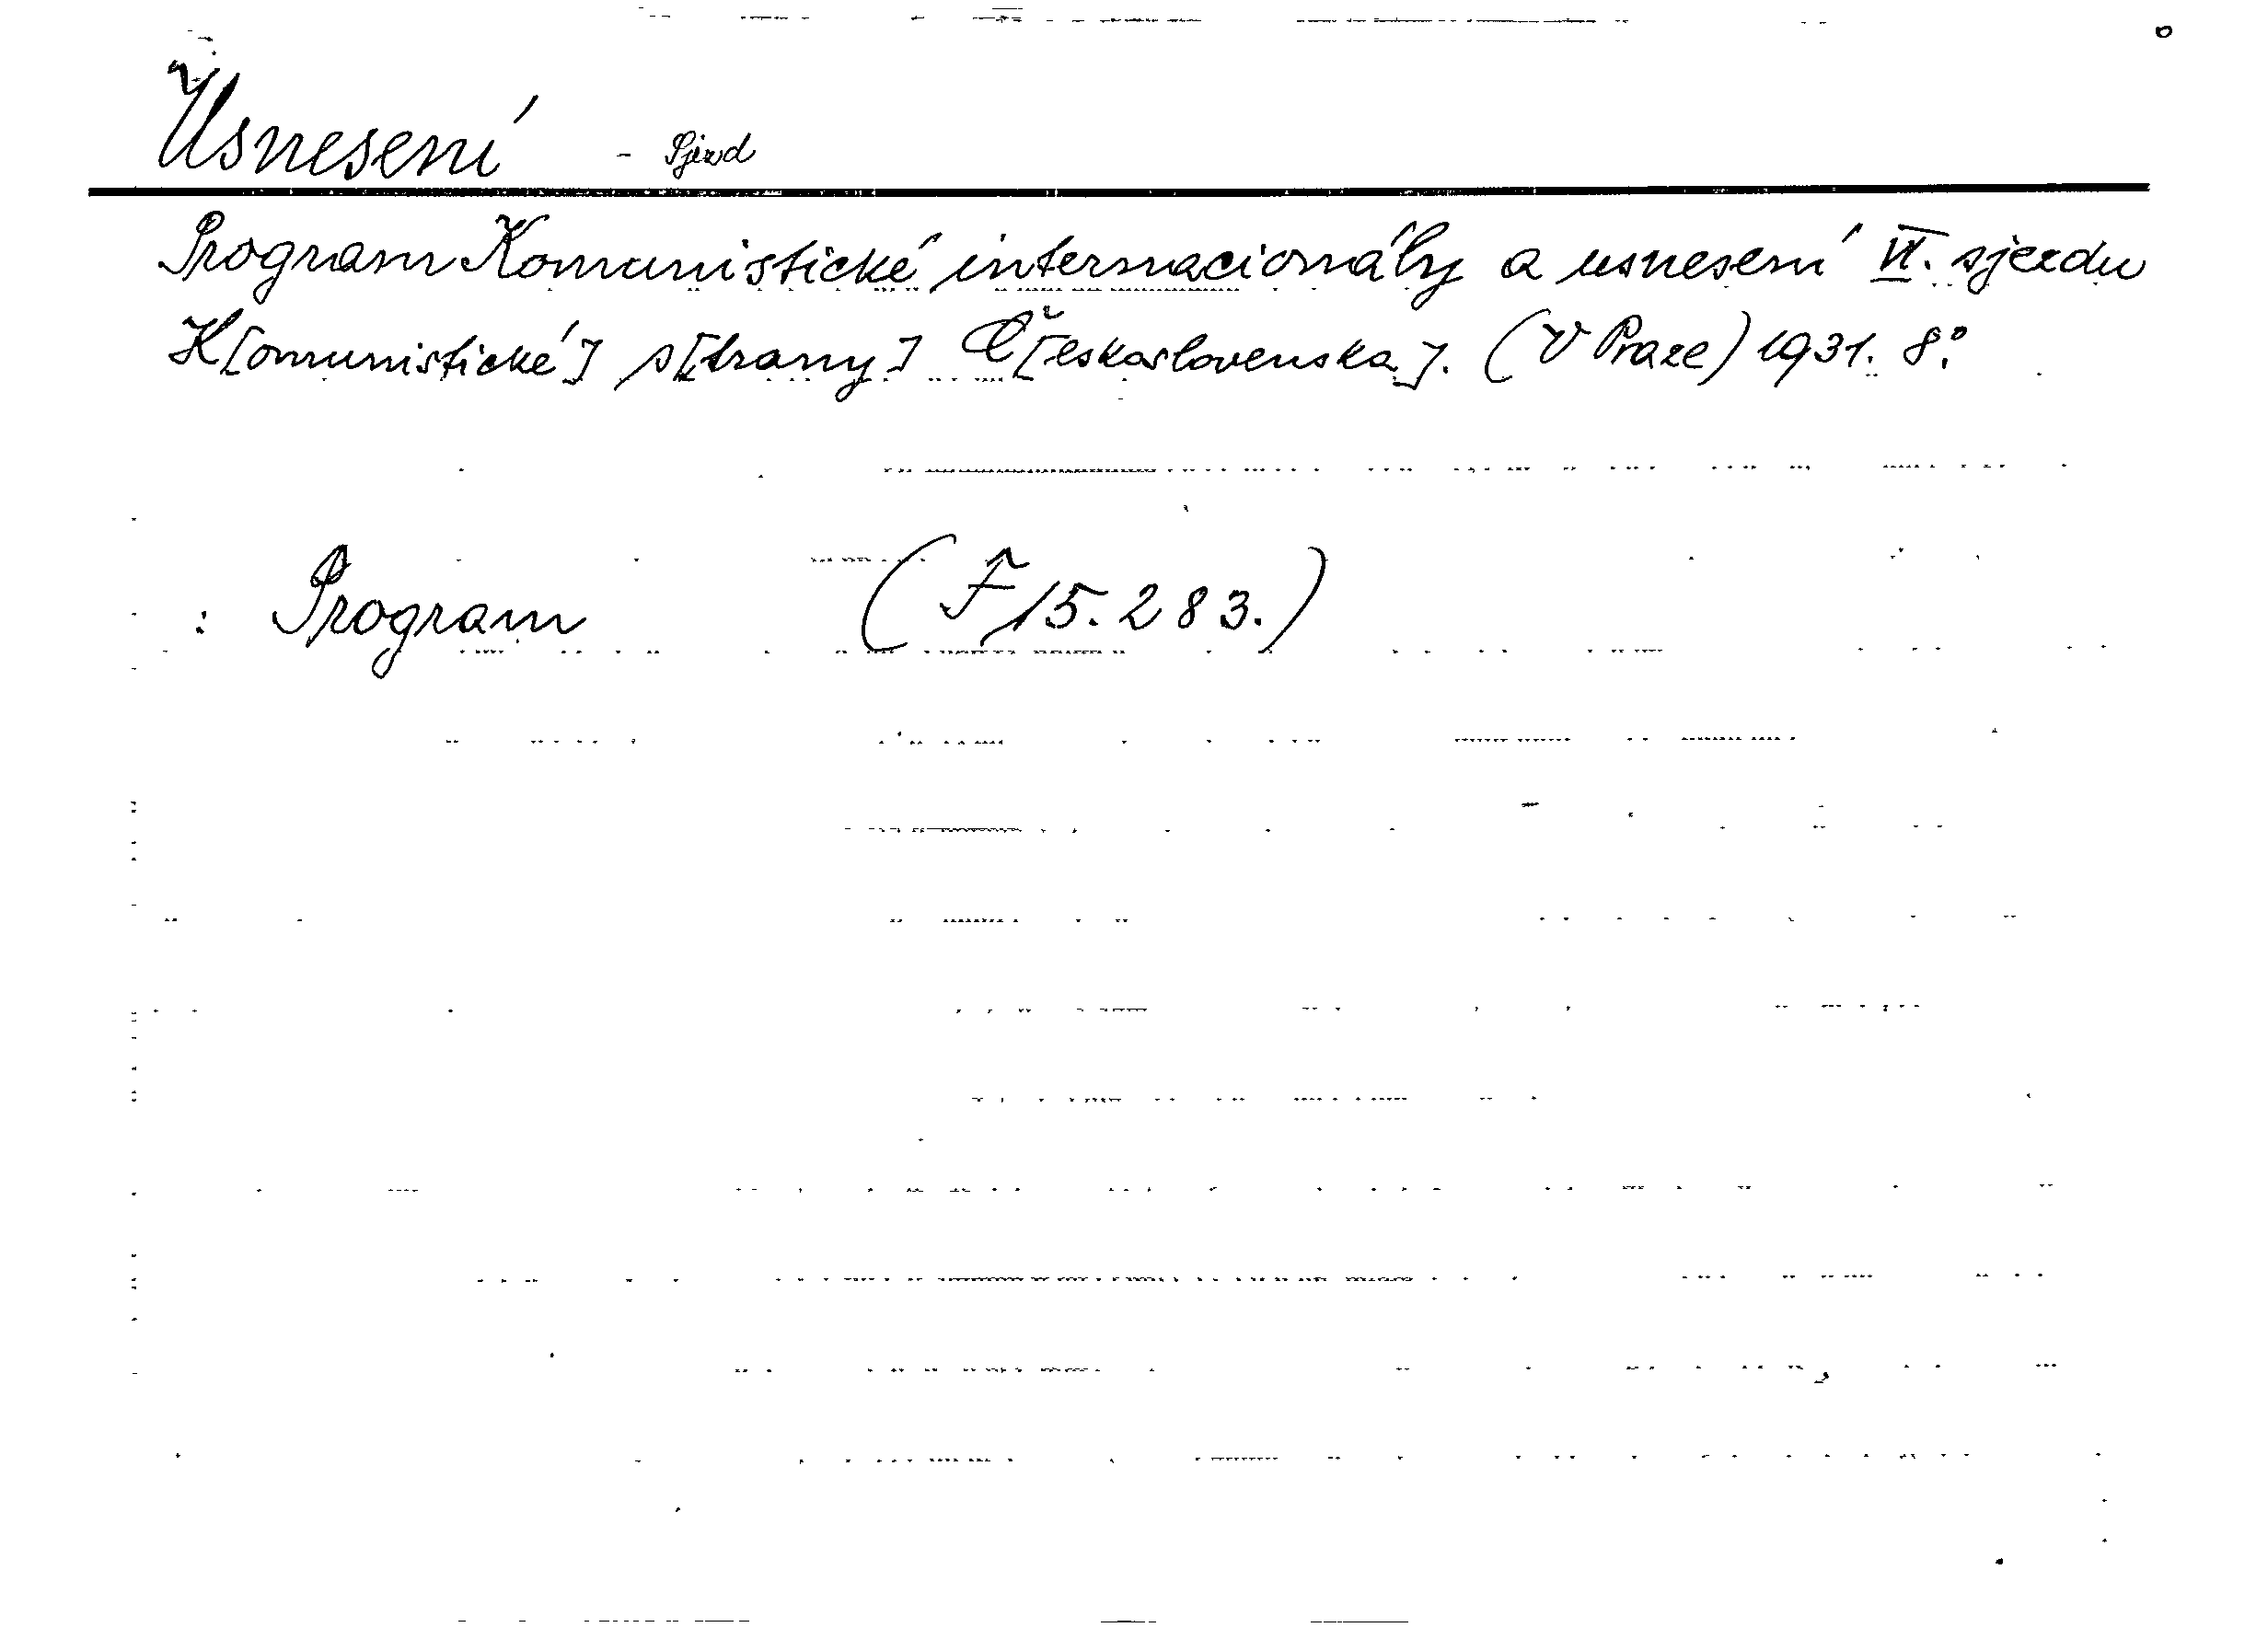 Usnesení - Sjezd
Program Komunistické internacionály a usnesení VI. sjezdu
K[omunistické] s[trany] Č[eskoslovenska]. (V Praze) 1931. 8°.
: Program (F 15.283.)